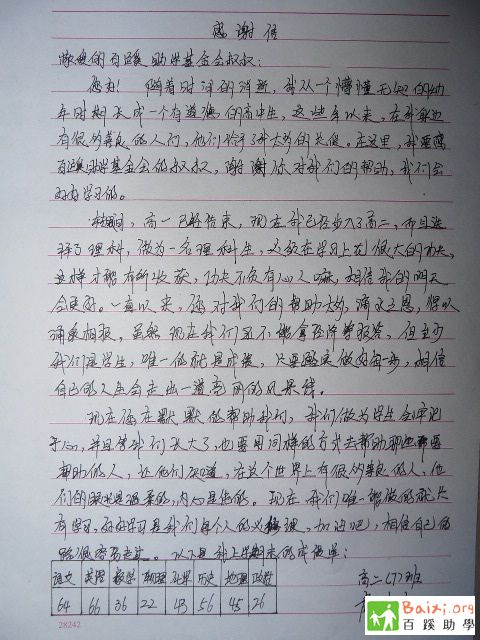 感谢信
敬爱的百蹊助学基金会叔叔:
您好! 随着时间的消逝,我从一个懵懂无知的幼
年时期长成一个有道德的高中生,这些年以来,在我身边
有很多善良的人们,他们给予我太多的关佷。在这里,我要感
百蹊助学基金会的叔叔,谢谢你对我们的帮助,我们会
好好学习的。
高一已经结束,现在我已经步入了高二,而且选
择了理科,做为一名理科生,必须在学习上花很大的功夫,
这样才能有所收获,功夫不负有心人嘛,相信我的明天
会更好。一直以来,您对我们的帮助太多,滴水之恩,得以
涌泉相报,虽然现在我们还不能拿经济等报答,但至少
我们是学生,唯一的就是成绩,只要踏实做好每一步,相信
自己的人生会走出一道亮丽的风景线。
现在您在默默的帮助我们,我们做为学生会牢记
于心,并且等我们长大了,也要用同样的方式去帮助那些需要
帮助的人,让他们知道,在这个世界上有很多善良的人,他
们的眼光是温柔的,内心是热的。现在我们唯一能做的就只
有学习,好好学习是我们每个人的必修课,加油吧,相信自己的
路很容易走。以下是我上学期末的成绩单:
语文 英语 数学 物理 化学 历史 地理 政治
64 66 36 22 43 56 45 26
高二(7)班
28242
Baixi.org
百蹊助學